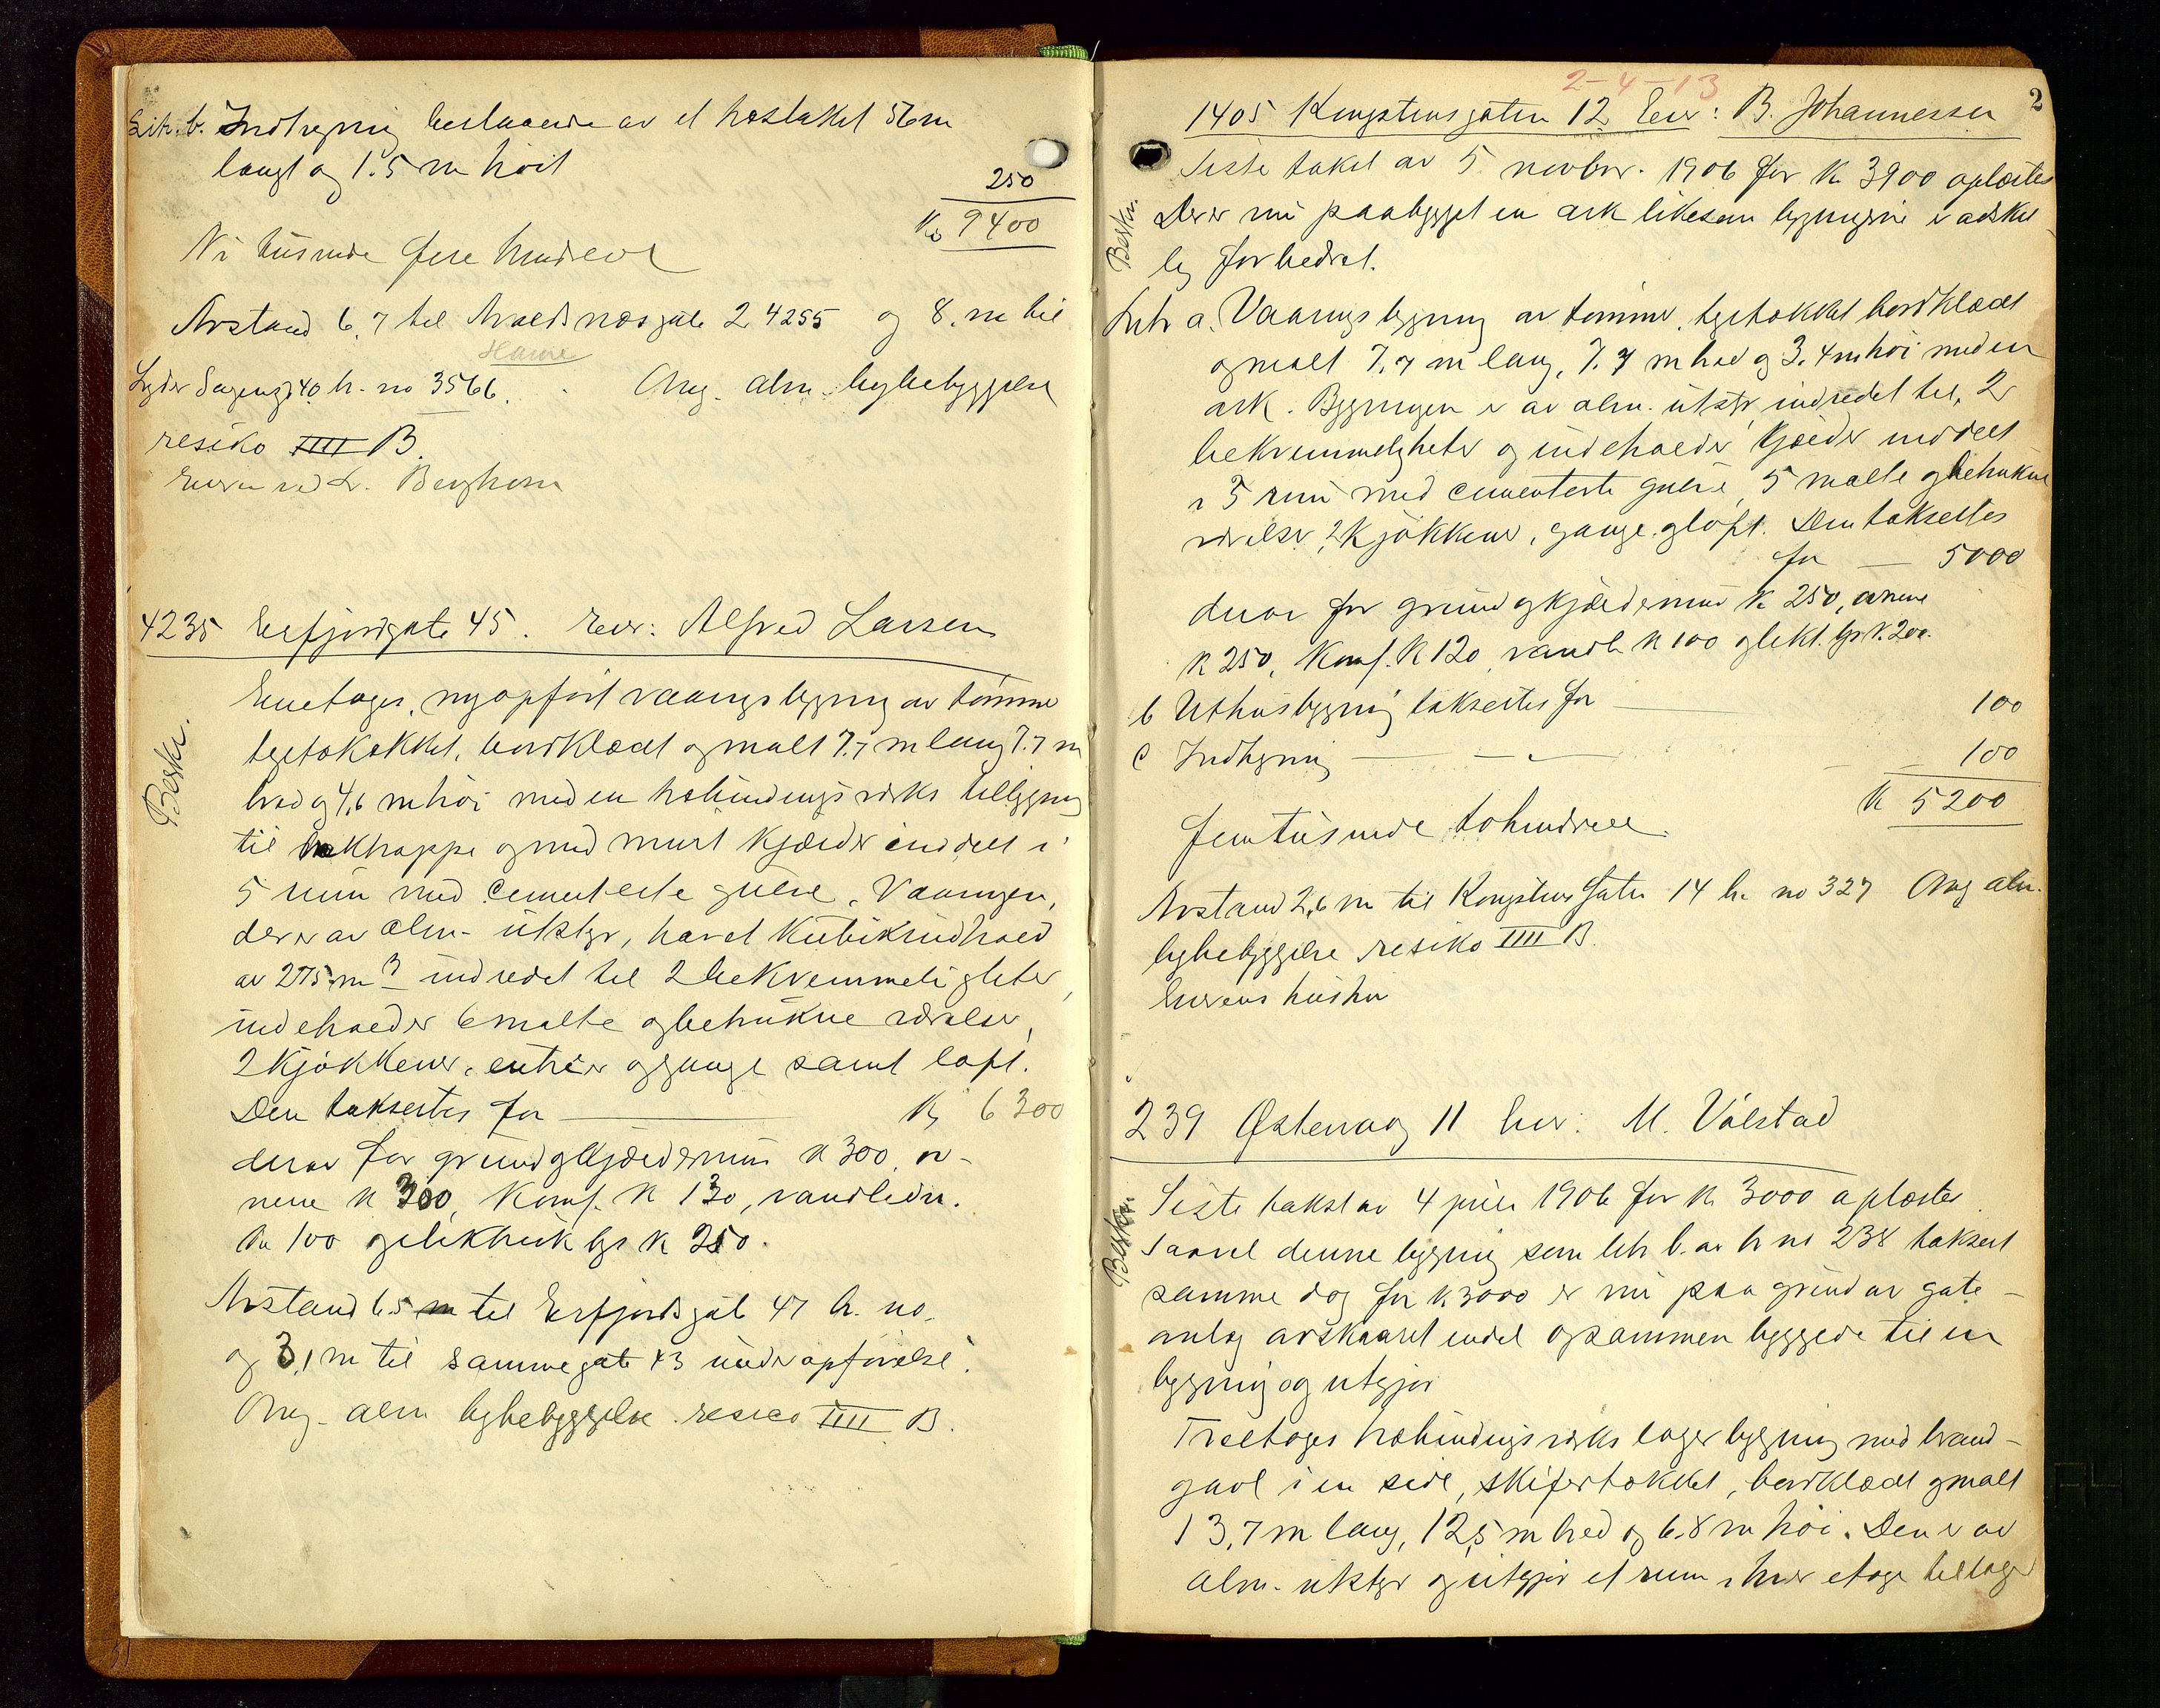 Litr. b. Indhegning bestaaende av et hæstaket 56 m
langt og 1.5 m høit
250
Kr 9400
Ni tusinde fire hundrede
Avstand 6,7 til Avaldsnesgate 2 4255 og 8. m til
Hauge
Lyder Sagensgt 40 h. no 3566. Ang. alm. bybebyggelse
resiko IIII B.
Eieren ved L. Berghom
4235 Erfjordgate 45. Eier: Alfred Larsen
Beskr.
Enetages, nyopført vaaningsbygning av tømmer
tegltækket, bordklædt og malt 7.7 m lang 7.7 m
bred og 4,6 m høi med en halvbindingsværks tilbygning
til baktrappe og med muret kjælder inddelt i
5 rum med cementerte gulve. Vaaningen,
der er av alm. utstyr, har et kubikindhold
av 275 m3 indredet til 2 bekvemmeligheter,
indeholder 6 malte og betrukne værelser,
2 kjøkkener, entreer og gange samt loft.
Den takseres for Kr 6300
derav for grund og kjældermur K 300, ov-
nene K 300, Komf. K 130, vandledn.
K 100 og elektrisk lys K 250.
Avstand 6.5 m til Erfjordsgate 47 h. no.
og 3,1 m til samme gate 43 under opførelse.
Ang. alm bybebyggelse resico IIII B.
2-4-13
2
1405 Kongstensgaten 12 Eier: B. Johannessen
Beskr.
Siste takst av 5 novbr. 1906 for K 3900 oplæstes
Der er nu paabygget en ark likesom bygningen er adskil-
lig forbedret.
Litr a. Vaaningsbygning av tømmer, tegltækket bordklædt
og malt 7.7 m lang, 7.7 m bred og 3.4 m høi med en
ark. Bygningen er av alm. utstyr, indredet til 2
bekvemmeligheter og indeholder kjælder inddelt
i 5 rum med cementerte gulve, 5 malte og betrukne
værelser, 2 kjøkkener, gange og loft. Den takseres
for 5000
derav for grund og kjældermur K 250, ovnene
K 250, Komf. K 120, vandl. K 100 og elekt. lys K. 200.
b Uthusbygning takseres for 100
c Indhegning — " — 100
K 5200
Femtusinde tohundrede.
Avstand 2,6 m til Kongstensgaten 14 h. no 327 Ang alm.
bybebyggelse resiko IIII B.
Eierens hustru
239 Østervaag 11 Eier: M. Vålstad
Beskr.
Siste takst av 4 juli 1906 for K 3000 oplæstes.
Saavel denne bygning som litr b. av h no 238 taksert
samme dag for K 3000 er nu paa grund av gate-
anlæg avskaaret endel og sammenbyggede til en
bygning og utgjør
Toetages halvbindingsværks lagerbygning med brand-
gavl i en side, skifertækket, bordklædt og malt
13,7 m lang, 12,5 m bred og 6.8 m høi. Den er av
alm. utstyr og utgjør et rum i hver etage til lager